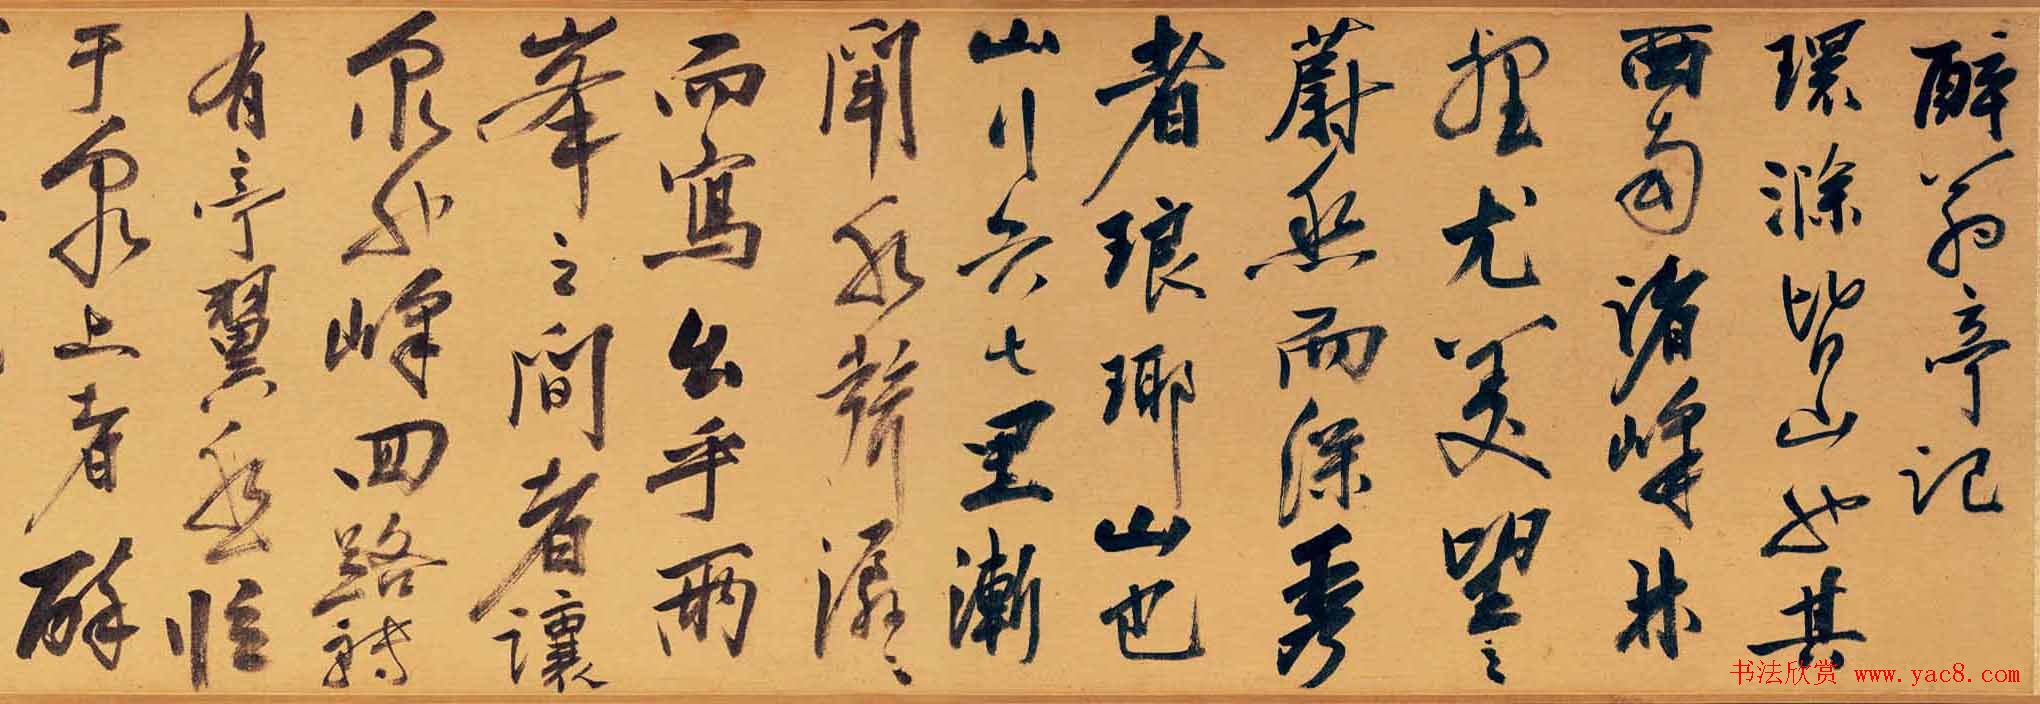 醉翁亭記
環滁皆山也其
西南諸峰林
壑尤美望之
蔚然而深秀
者琅瑘山也
山行六七里漸
聞水聲潺〻
而寫出乎兩
峯之間者讓
泉也峰回路轉
有亭翼然臨
于泉上者醉
书法欣赏 www.yac8.com